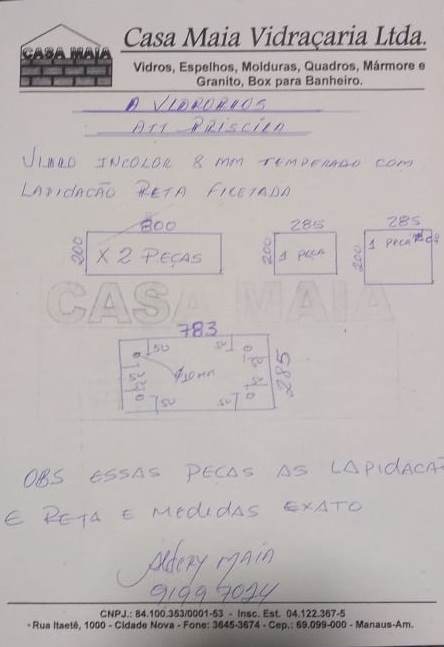 CASA MAIA
Casa Maia Vidraçaria Ltda.
Vidros, Espelhos, Molduras, Quadros, Mármore e
Granito, Box para Banheiro.
A VIDRORIOS
ATT PRISCILA
VIDRO INCOLOR 8 mm TEMPERADO COM
LAPIDACÃO RETA FILETADA
800 285 285
200 X 2 PEÇAS 200 1 PEÇA 200 1 PECA
CASA MAIA
783
50
Ø10mm
285
OBS ESSAS PECAS AS LAPIDACA
E RETA E MEDIDAS EXATO
Aldery MAIA
9199 7024
CNPJ.: 84.100.353/0001-53 - Insc. Est. 04.122.367-5
Rua Itaetê, 1000 - Cidade Nova - Fone: 3645-3674 - Cep.: 69.099-000 - Manaus-Am.